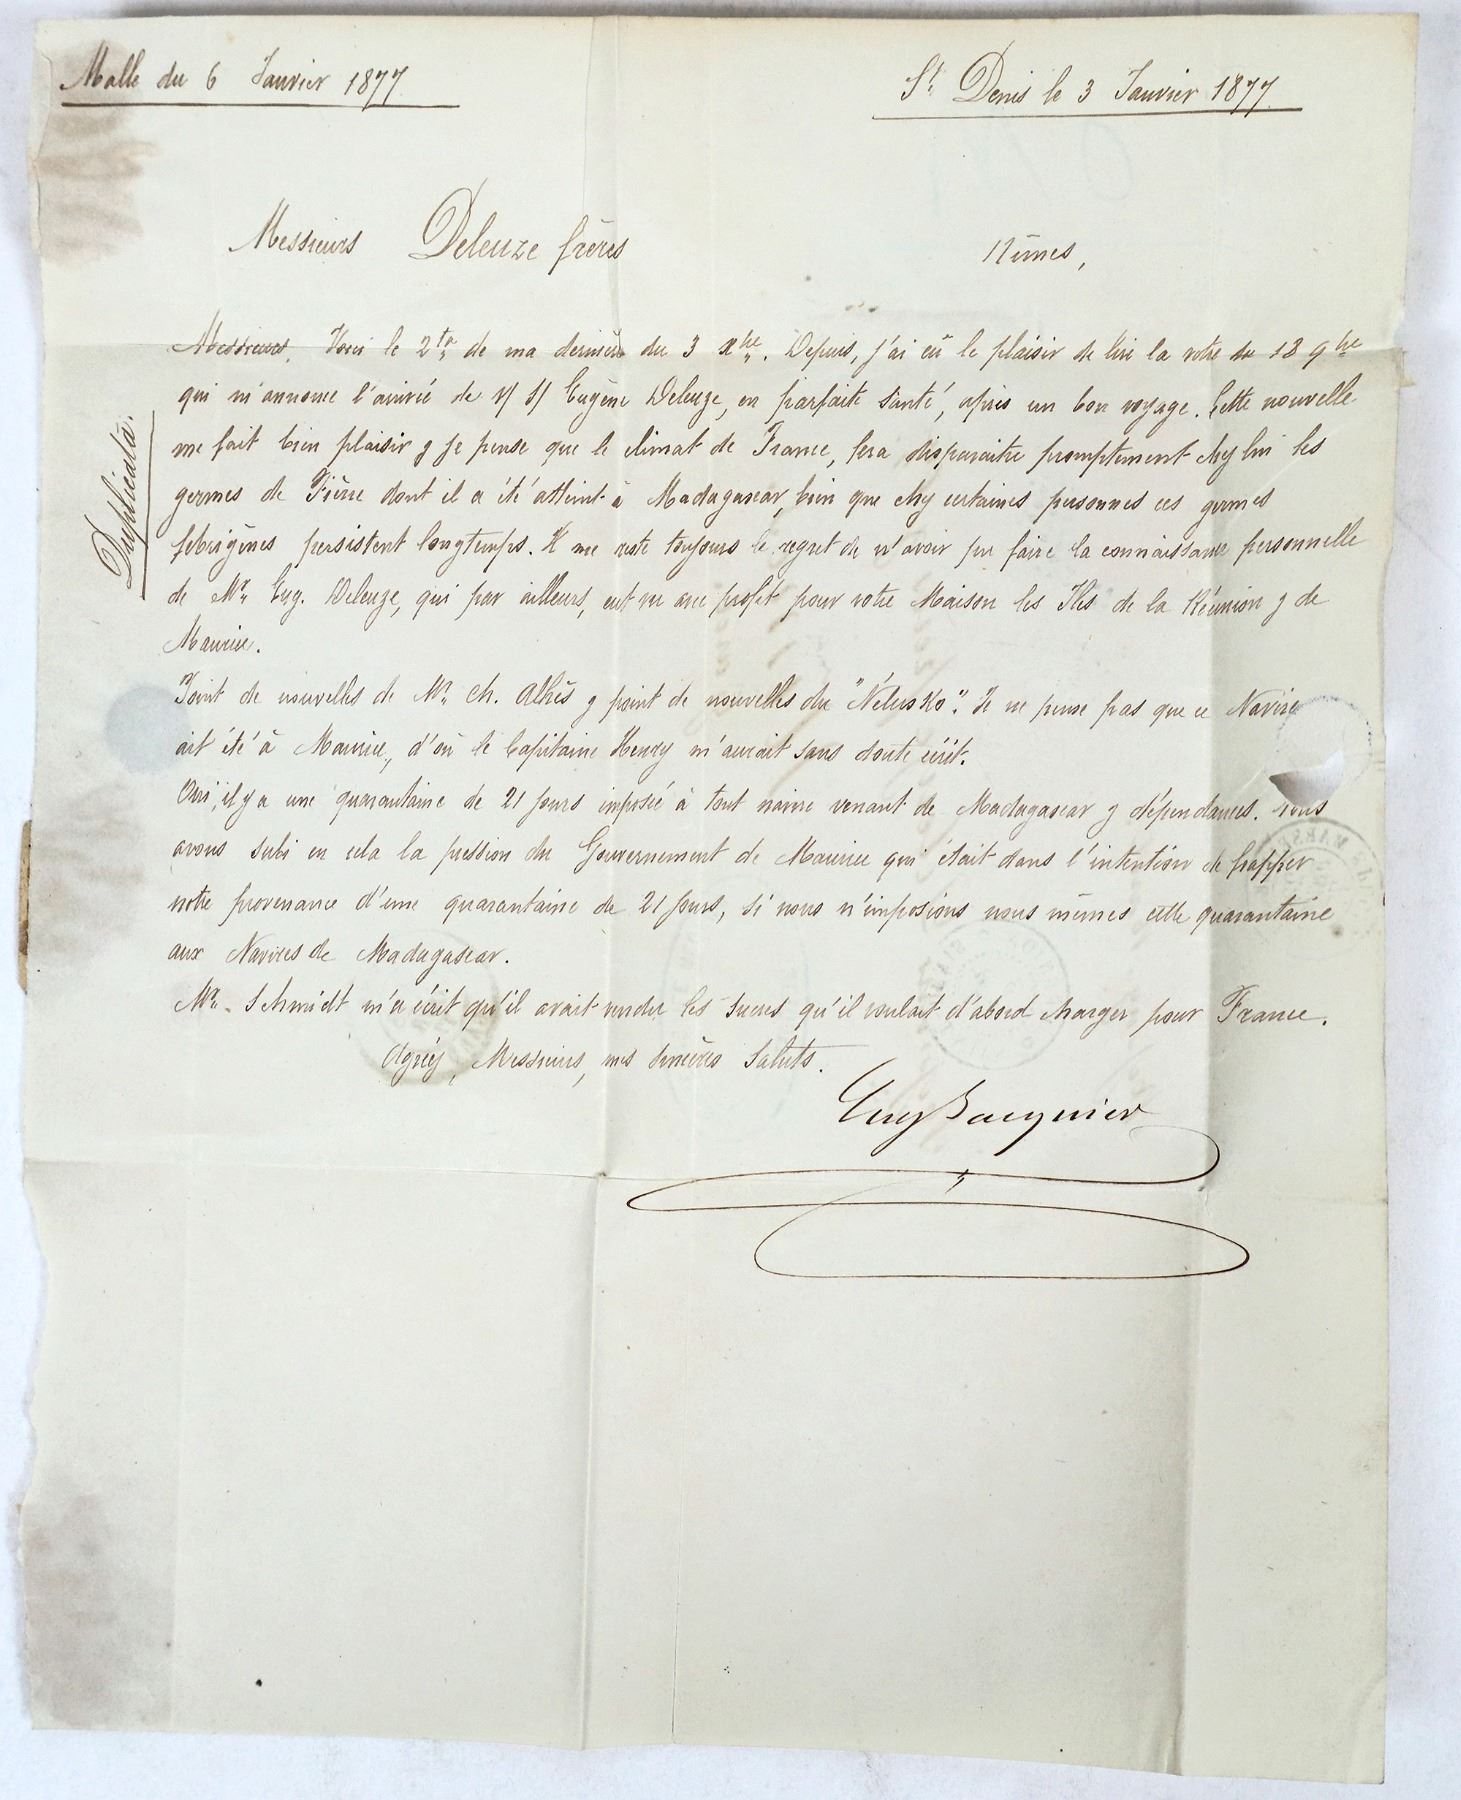 Malle du 6 Janvier 1877
St Denis le 3 Janvier 1877
Messieurs Deleuze frères
Nîmes,
Duplicata.
Messieurs, Voici le 2ta de ma dernière du 3 Xbre. Depuis, j'ai eû le plaisir de lire la votre du 18 9bre
qui m'annonce l'arrivée de V/ S/ Eugène Deleuze, en parfaite santé, après un bon voyage. Cette nouvelle
me fait bien plaisir & je pense que le climat de France, fera disparaitre promptement chez lui les
germes de Fièvre dont il a été atteint à Madagascar, bien que chez certaines personnes ces germes
febrigènes persistent longtemps. Il me reste toujours le regret de n'avoir pu faire la connaissance personnelle
de Mr. Eug. Deleuze, qui par ailleurs, eut vu avec profit pour votre Maison les Iles de la Réunion & de
Maurice.
Point de nouvelles de Mr. Ch. Albès & point de nouvelles du "Nélusko". Je ne pense pas que ce Navire
ait été à Maurice, d'où le Capitaine Henry m'aurait sans doute écrit.
Oui, il y a une quarantaine de 21 jours imposée à tout navire venant de Madagascar & dépendances. Nous
avons subi en cela la pression du Gouvernement de Maurice qui était dans l'intention de frapper
notre provenance d'une quarantaine de 21 jours, si nous n'imposions nous mêmes cette quarantaine
aux Navires de Madagascar.
Mr. Schmidt m'a écrit qu'il avait vendu les sucres qu'il voulait d'abord charger pour France.
Agréez, Messieurs, mes sincères saluts.